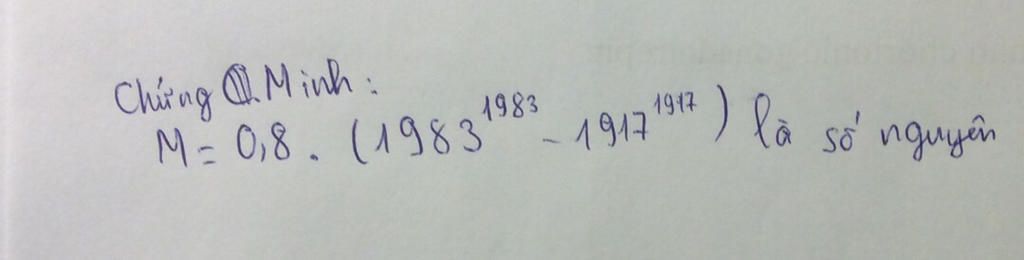 Chứng Minh:
M = 0,8 . (1983^1983 - 1917^1917) là số nguyên